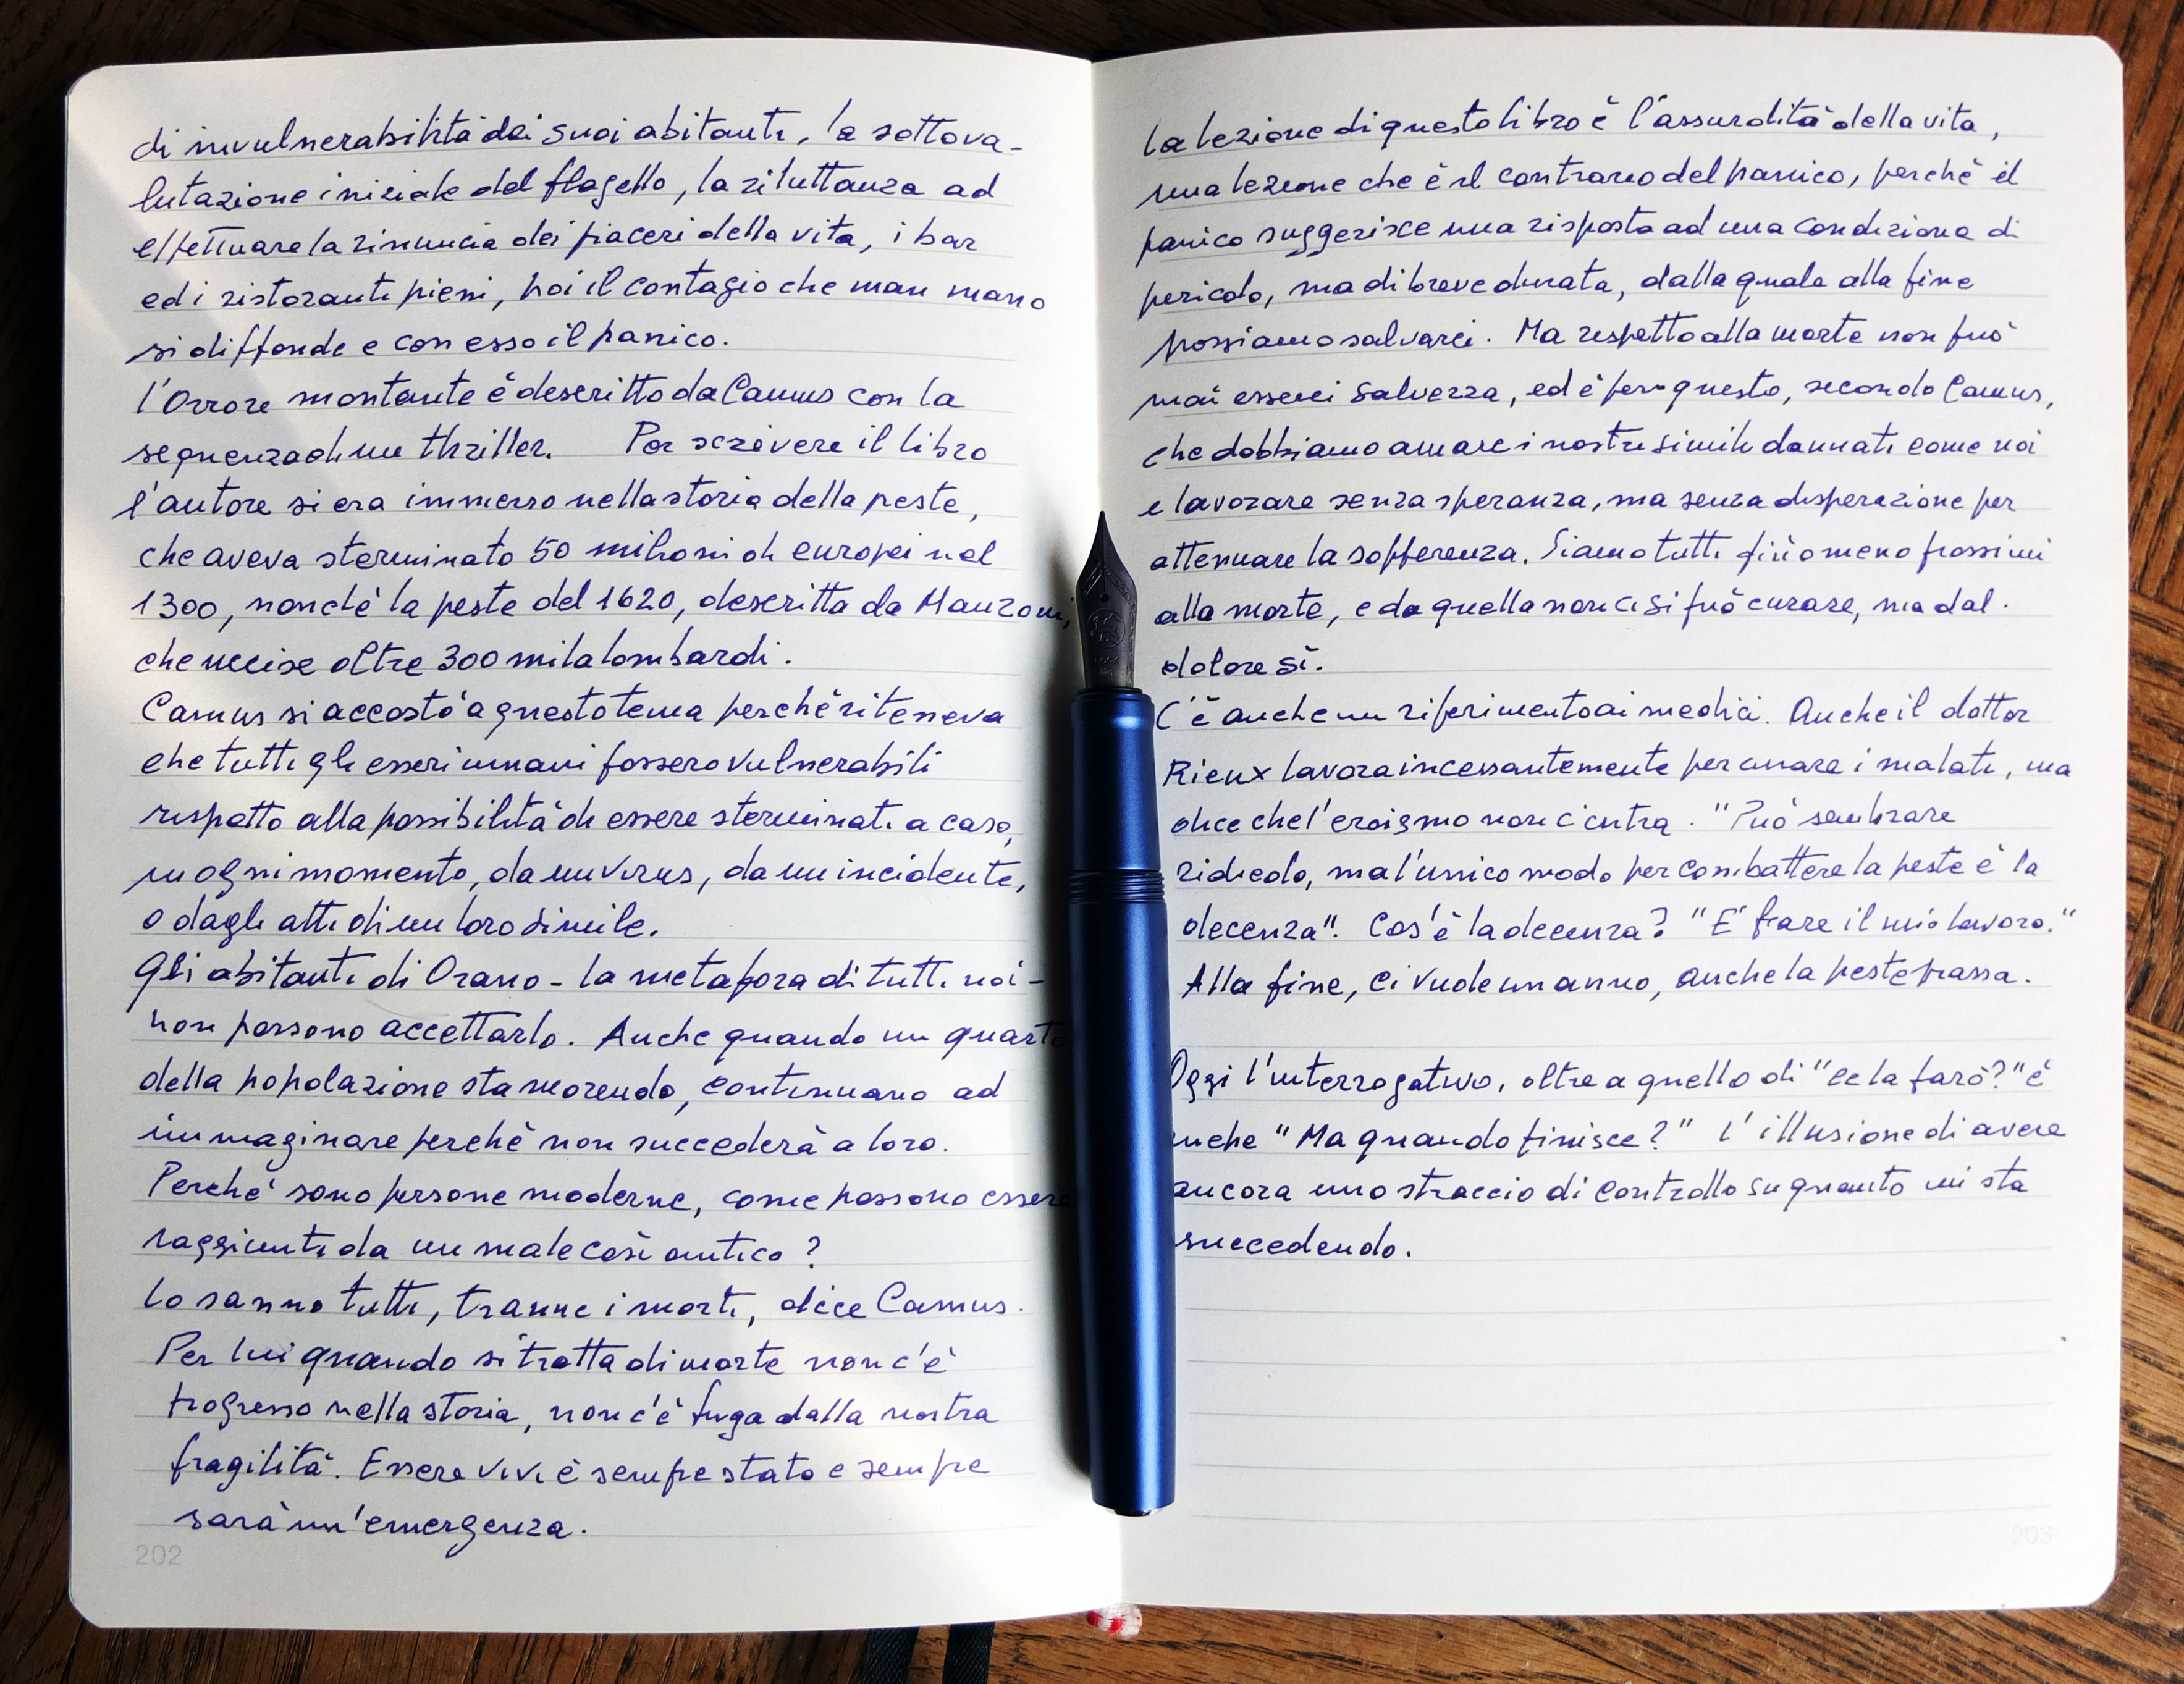 di invulnerabilità dei suoi abitanti, la sottova-
lutazione iniziale del flagello, la riluttanza ad
effettuare la rinuncia dei piaceri della vita, i bar
ed i ristoranti pieni, poi il contagio che man mano
si diffonde e con esso il panico.
l'Orrore montante è descritto da Camus con la
sequenza di un thriller. Per scrivere il libro
l'autore si era immerso nella storia della peste,
che aveva sterminato 50 milioni di europei nel
1300, nonché la peste del 1620, descritta da Manzoni,
che uccise oltre 300 mila lombardi.
Camus si accostò a questo tema perchè riteneva
che tutti gli esseri umani fossero vulnerabili
rispetto alla possibilità di essere sterminati a caso,
in ogni momento, da un virus, da un incidente,
o dagli atti di un loro simile.
Gli abitanti di Orano - la metafora di tutti noi -
non possono accettarlo. Anche quando un quarto
della popolazione sta morendo, continuano ad
immaginare perchè non succederà a loro.
Perché sono persone moderne, come possono essere
raggiunti da un male così antico?
Lo sanno tutti, tranne i morti, dice Camus.
Per lui quando si tratta di morte non c'è
progresso nella storia, non c'è fuga dalla nostra
fragilità. Essere vivi è sempre stato e sempre
sarà un'emergenza.
202
La lezione di questo libro è l'assurdità della vita,
una lezione che è il contrario del panico, perchè il
panico suggerisce una risposta ad una condizione di
pericolo, ma di breve durata, dalla quale alla fine
possiamo salvarci. Ma rispetto alla morte non può
mai esserci salvezza, ed è per questo, secondo Camus,
che dobbiamo amare i nostri simili dannati come noi
e lavorare senza speranza, ma senza disperazione per
attenuare la sofferenza. Siamo tutti più o meno prossimi
alla morte, e da quella non ci si può curare, ma dal
dolore sì.
C'è anche un riferimento ai medici. Anche il dottor
Rieux lavora incessantemente per curare i malati, ma
dice che l'eroismo non c'entra. "Può sembrare
ridicolo, ma l'unico modo per combattere la peste è la
decenza". Cos'è la decenza? "E' fare il mio lavoro."
Alla fine, ci vuole un anno, anche la peste passa.
Oggi l'interrogativo, oltre a quello di "ce la farò?" è
anche "Ma quando finisce?" L'illusione di avere
ancora uno straccio di controllo su quanto mi sta
succedendo.
203